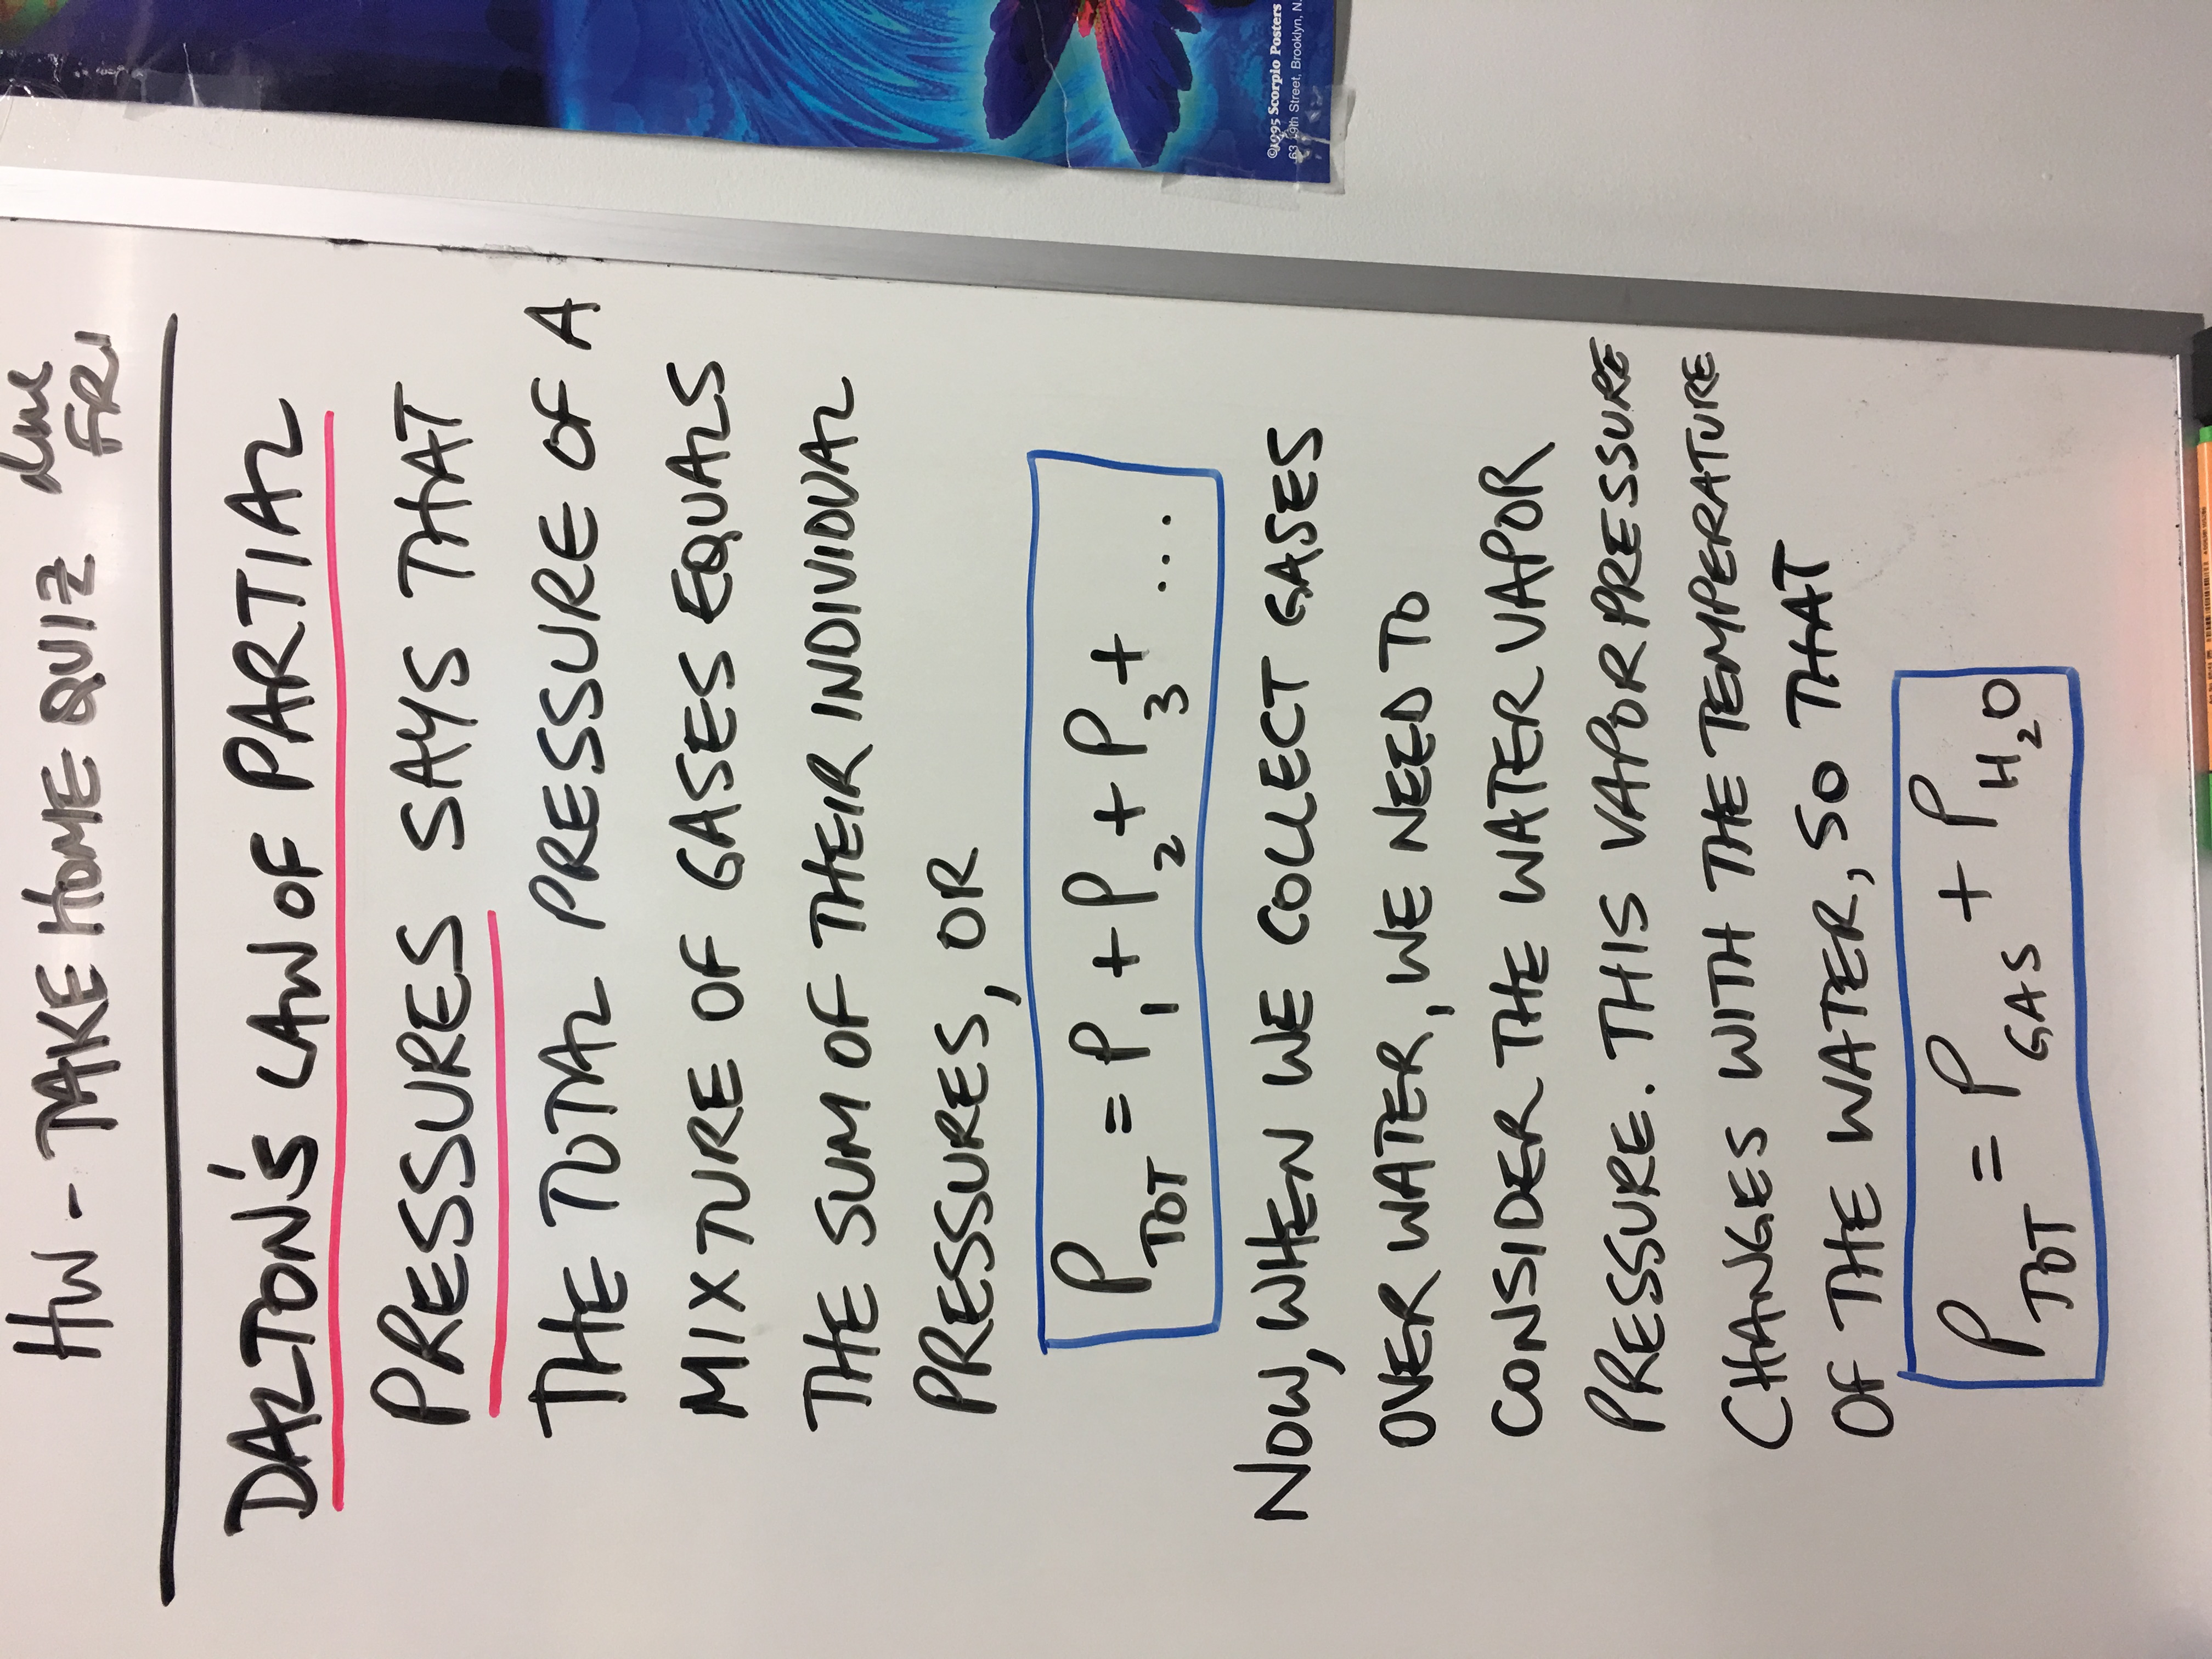 ©1995 Scorpio Posters
63 19th Street, Brooklyn, N.
HW - TAKE HOME QUIZ due FRI
DALTON'S LAW OF PARTIAL
PRESSURES SAYS THAT
THE TOTAL PRESSURE OF A
MIXTURE OF GASES EQUALS
THE SUM OF THEIR INDIVIDUAL
PRESSURES, OR
P_TOT = P_1 + P_2 + P_3 + ...
NOW, WHEN WE COLLECT GASES
OVER WATER, WE NEED TO
CONSIDER THE WATER VAPOR
PRESSURE. THIS VAPOR PRESSURE
CHANGES WITH THE TEMPERATURE
OF THE WATER, SO THAT
P_TOT = P_GAS + P_H₂O